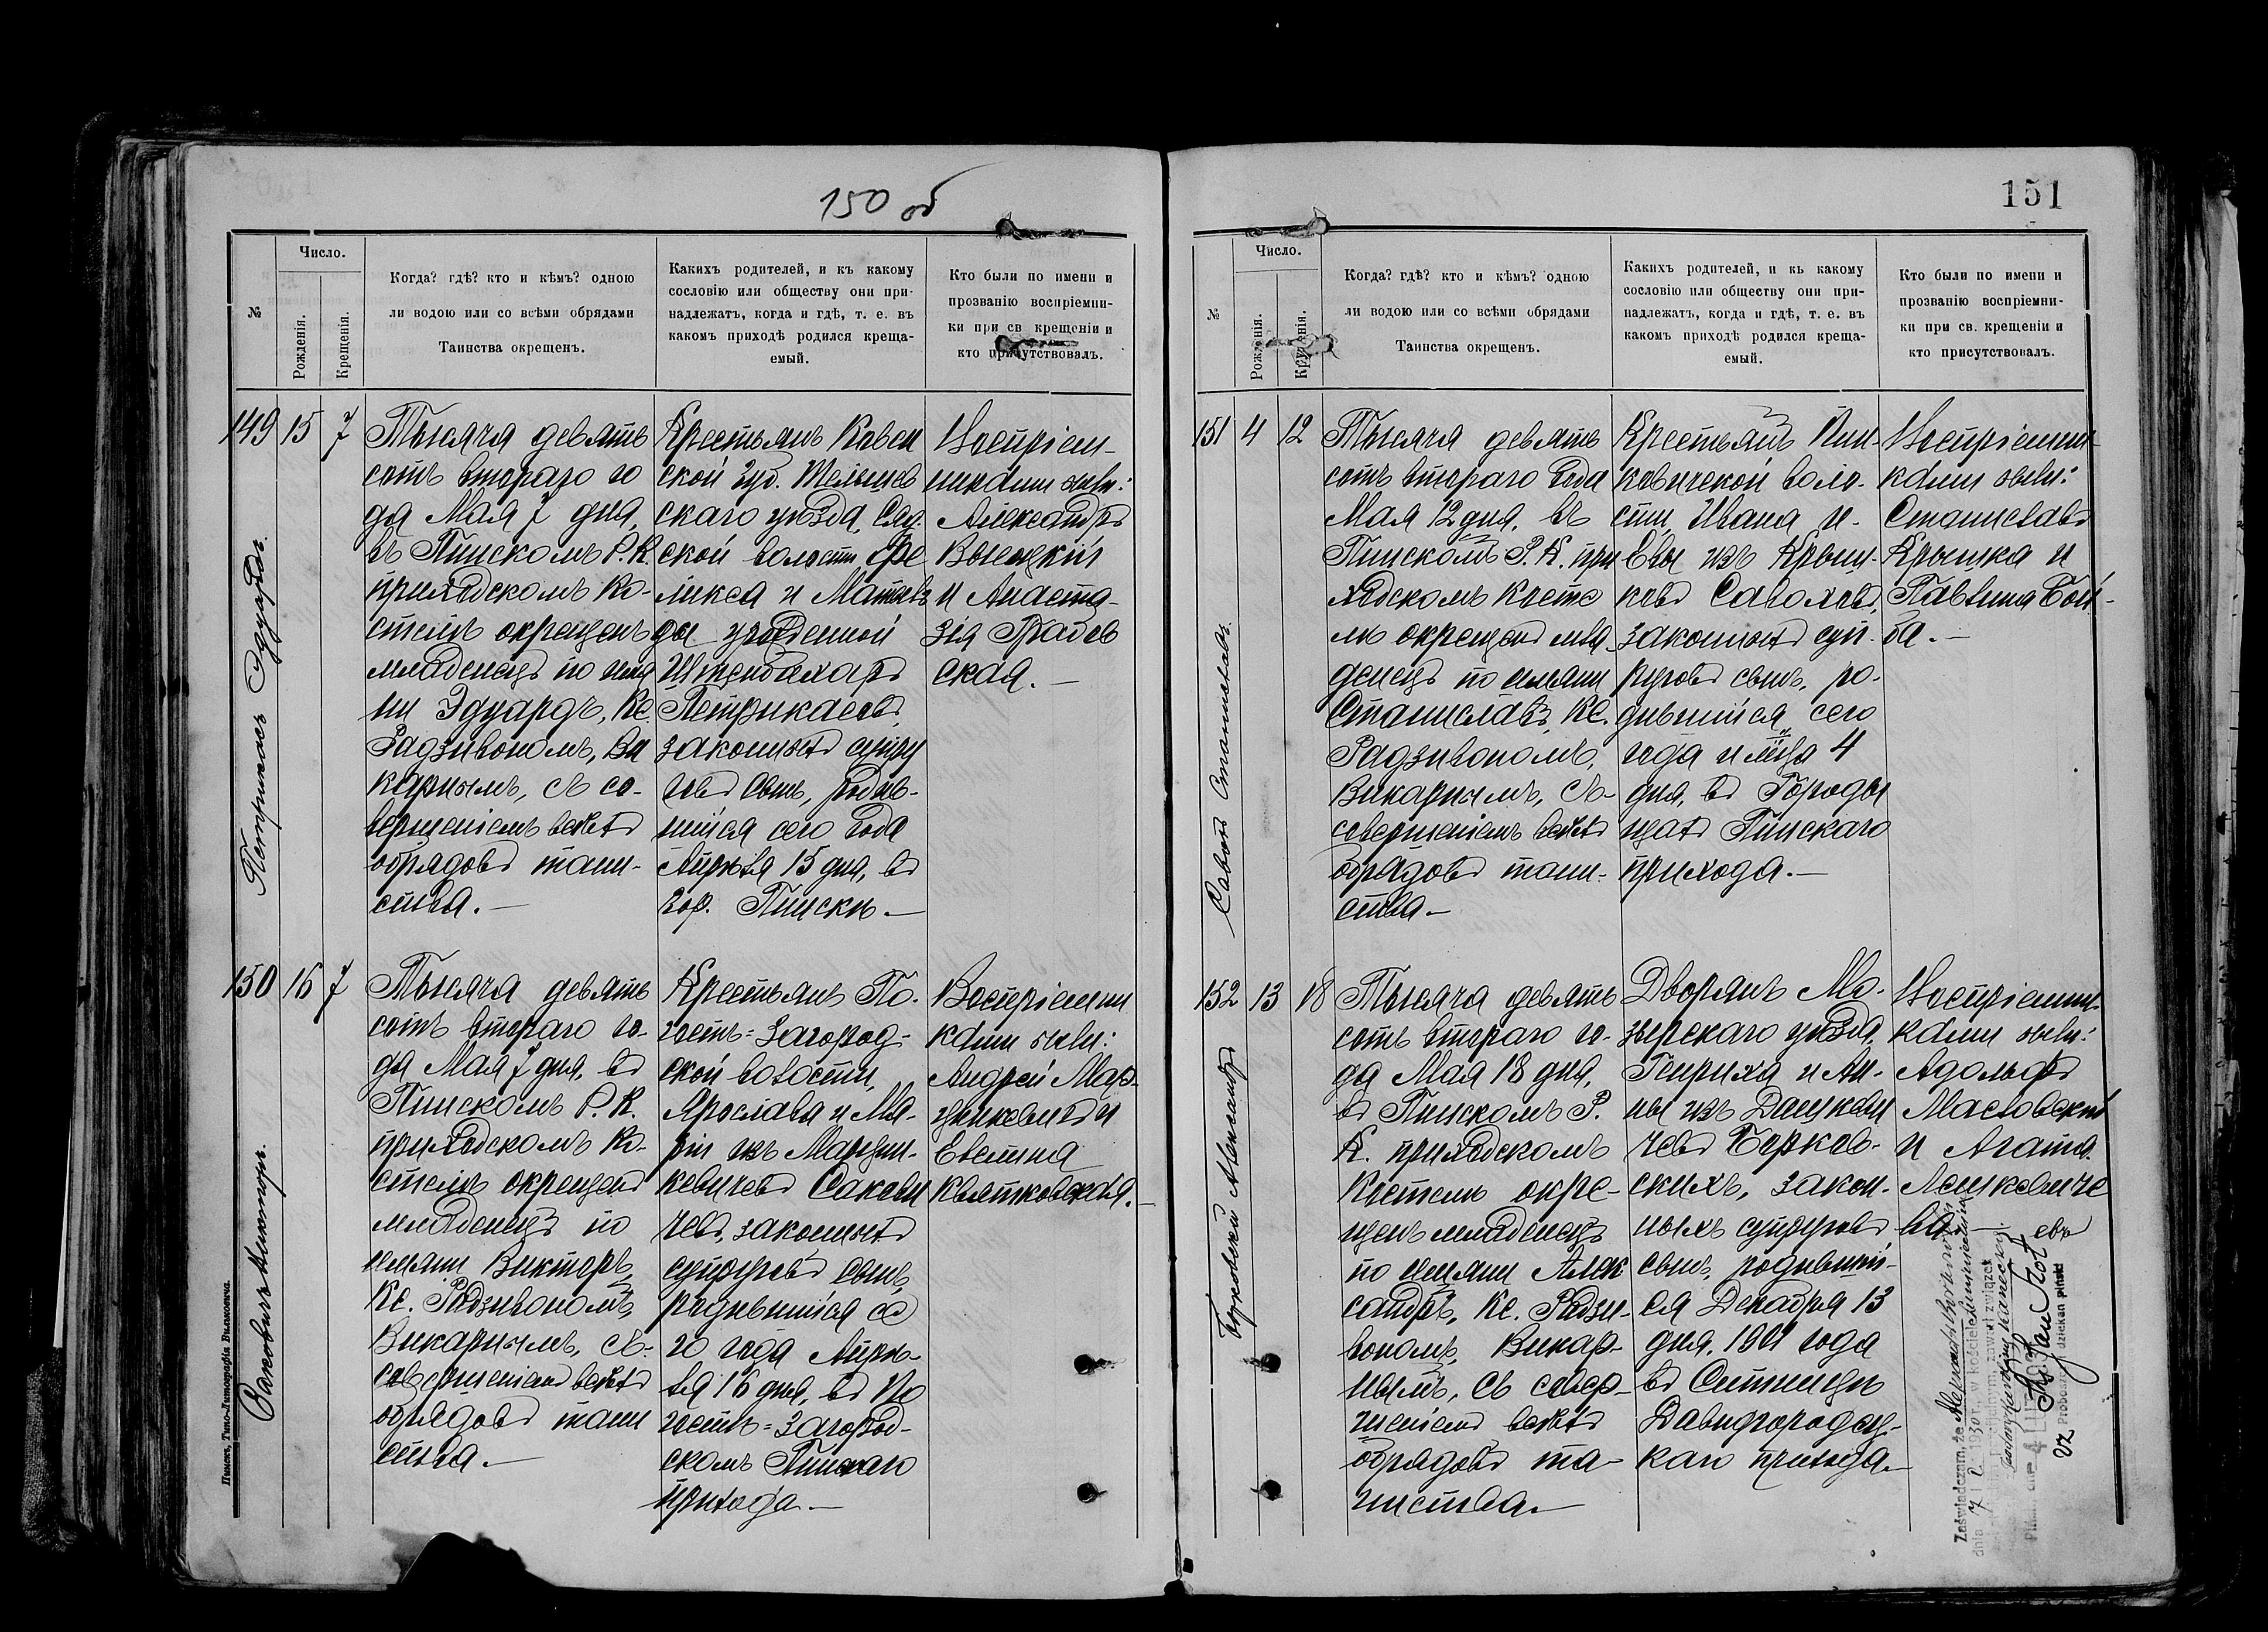 150 об
№
Число.
Рожденія.
Крещенія.
Когда? гдѣ? кто и кѣмъ? одною
ли водою или со всѣми обрядами
Таинства окрещенъ.
Какихъ родителей, и къ какому
сословію или обществу они при-
надлежатъ, когда и гдѣ, т. е. въ
какомъ приходѣ родился креща-
емый.
Кто были по имени и
прозванію воспріемни-
ки при св крещеніи и
кто присутствовалъ.
149
15
7
Петрикасъ Эдуардъ.
Тысяча девять
сотъ втораго го
да Мая 7 дня,
въ Пинскомъ Р. К.
приходскомъ Ко-
стелѣ окрещенъ
младенецъ по име
ни Эдуардъ, Кс.
Радзивономъ, Ви
карнымъ, съ со-
вершеніемъ всѣхъ
обрядовъ таин-
ства.—
Крестьянъ Ковен
ской губ. Тельшев
скаго уѣзда, Сяд.
ской волости Фе
ликса и Матиль
ды урожденной
Петрикасовъ,
законныхъ супру
говъ сынъ, родив-
шійся сего года
Апрѣля 15 дня, въ
гор. Пинскѣ.—
Воспріем-
никами были:
Александръ
Высоцкій
и Анаста-
зія Грабов
ская.—
150
16
7
Саковичъ Викторъ.
Тысяча девять
сотъ втораго го-
да Мая 7 дня, въ
Пинскомъ Р. К.
приходскомъ Ко-
стелѣ окрещенъ
младенецъ по
имени Викторъ,
Кс. Радзивономъ,
Викарнымъ, съ-
совершеніемъ всѣхъ
обрядовъ таин
ства.—
Крестьянъ По-
гостъ-Загород-
ской волости,
Ярослава и Ма-
ріи изъ Марцин-
кевичевъ Сакови
чевъ, законныхъ
супруговъ сынъ,
родившійся се
го года Апрѣ-
ля 16 дня, въ По
гостъ-Загород-
скомъ Пинскаго
прихода.—
Воспріемни
ками были:
Андрей Мар-
цинкевичъ и
Евелина
Квятковская.—
Пинскъ, Типо-Литографія Вильковича.
151
№
Число.
Рожденія.
Крещенія.
Когда? гдѣ? кто и кѣмъ? одною
ли водою или со всѣми обрядами
Таинства окрещенъ.
Какихъ родителей, и къ какому
сословію или обществу они при-
надлежатъ, когда и гдѣ, т. е. въ
какомъ приходѣ родился креща-
емый.
Кто были по имени и
прозванію воспріемни-
ки при св. крещеніи и
кто присутствовалъ.
151
4
12
Станиславъ.
Тысяча девять
сотъ втораго года
Мая 12 дня, въ
Пинскомъ Р. К. при
ходскомъ Косте
лѣ окрещенъ мла-
денецъ по имени
Станиславъ, Кс.
Радзивономъ,
Викарнымъ, съ-
совершеніемъ всѣхъ
обрядовъ таин-
ства.—
Крестьянъ Пин-
ковичской воло-
сти, Ивана и-
Евы изъ Крыш-
ковъ
законныхъ суп-
руговъ сынъ, ро-
дившійся сего
года и мѣсца 4
дня, въ Городы
щахъ Пинскаго
прихода.—
Воспріемни-
ками были:
Станиславъ
Крышка и
152
13
18
Берковскій Александръ
Тысяча девять
сотъ втораго го-
да Мая 18 дня,
въ Пинскомъ Р.
К. приходскомъ
Костелѣ окре-
щенъ младенецъ
по имени Алек
сандръ, Кс. Радзи-
вономъ, Викар-
нымъ, съ совер-
шеніемъ всѣхъ
обрядовъ та-
инства.—
Дворянъ Мо-
зырскаго уѣзда,
Генриха и Ан-
ны изъ Дашкеви
чевъ Берков-
скихъ, закон-
ныхъ супруговъ
сынъ, родившій-
ся Декабря 13
дня, 1901 года
въ Ситницѣ
Давидгородец-
каго прихода.—
Воспріемни-
ками были:
Адольфъ
Масловскій
и Агата
Zaświadczam, że
dnia 7 1930 r. w kościele
zawarł związek
Ks Jan
Proboszcz i dziekan piński